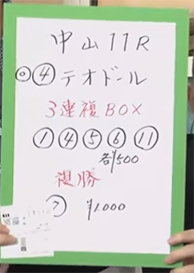 中山11R
◎④テオドール
3連複BOX
①④⑤⑥⑪
各¥500
複勝
⑦ ¥1,000